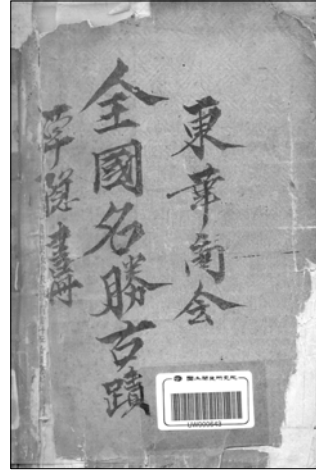 東華商会
全國名勝古蹟
隱書
UW000643